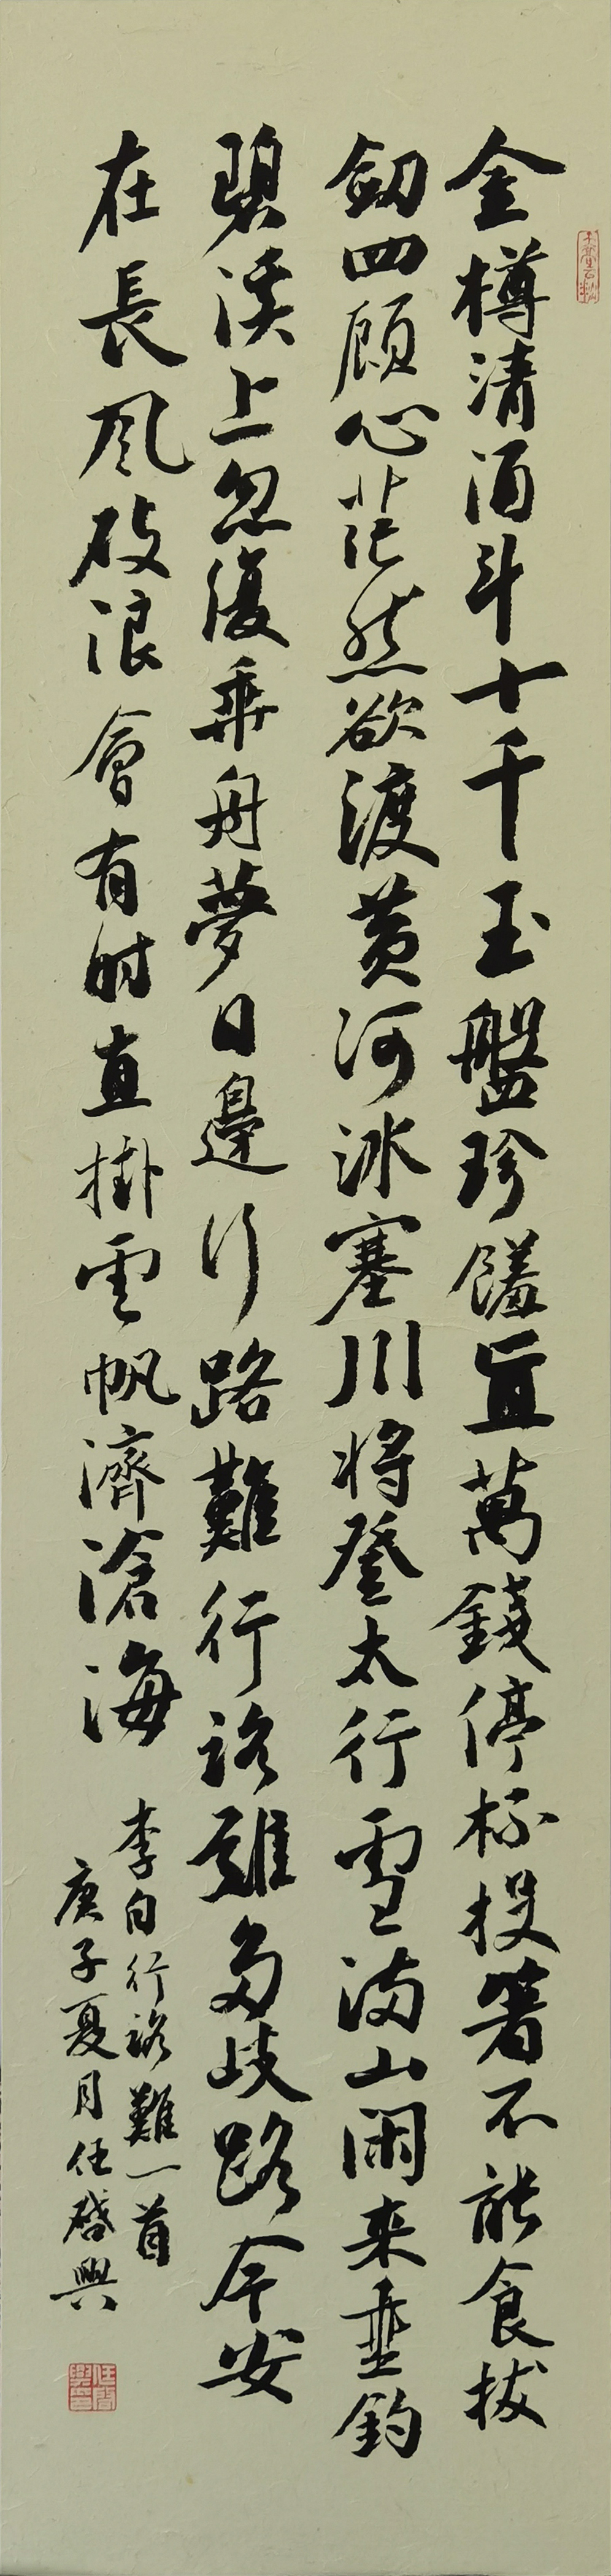 金樽清酒斗十千玉盤珍饈直萬錢停杯投箸不能食拔
劒四顧心茫然欲渡黄河冰塞川将登太行雪满山閑来垂釣
碧溪上忽復乘舟夢日邊行路難行路難多歧路今安
在長風破浪會有时直掛雲帆濟滄海
李白行路難一首
庚子夏月任啓興